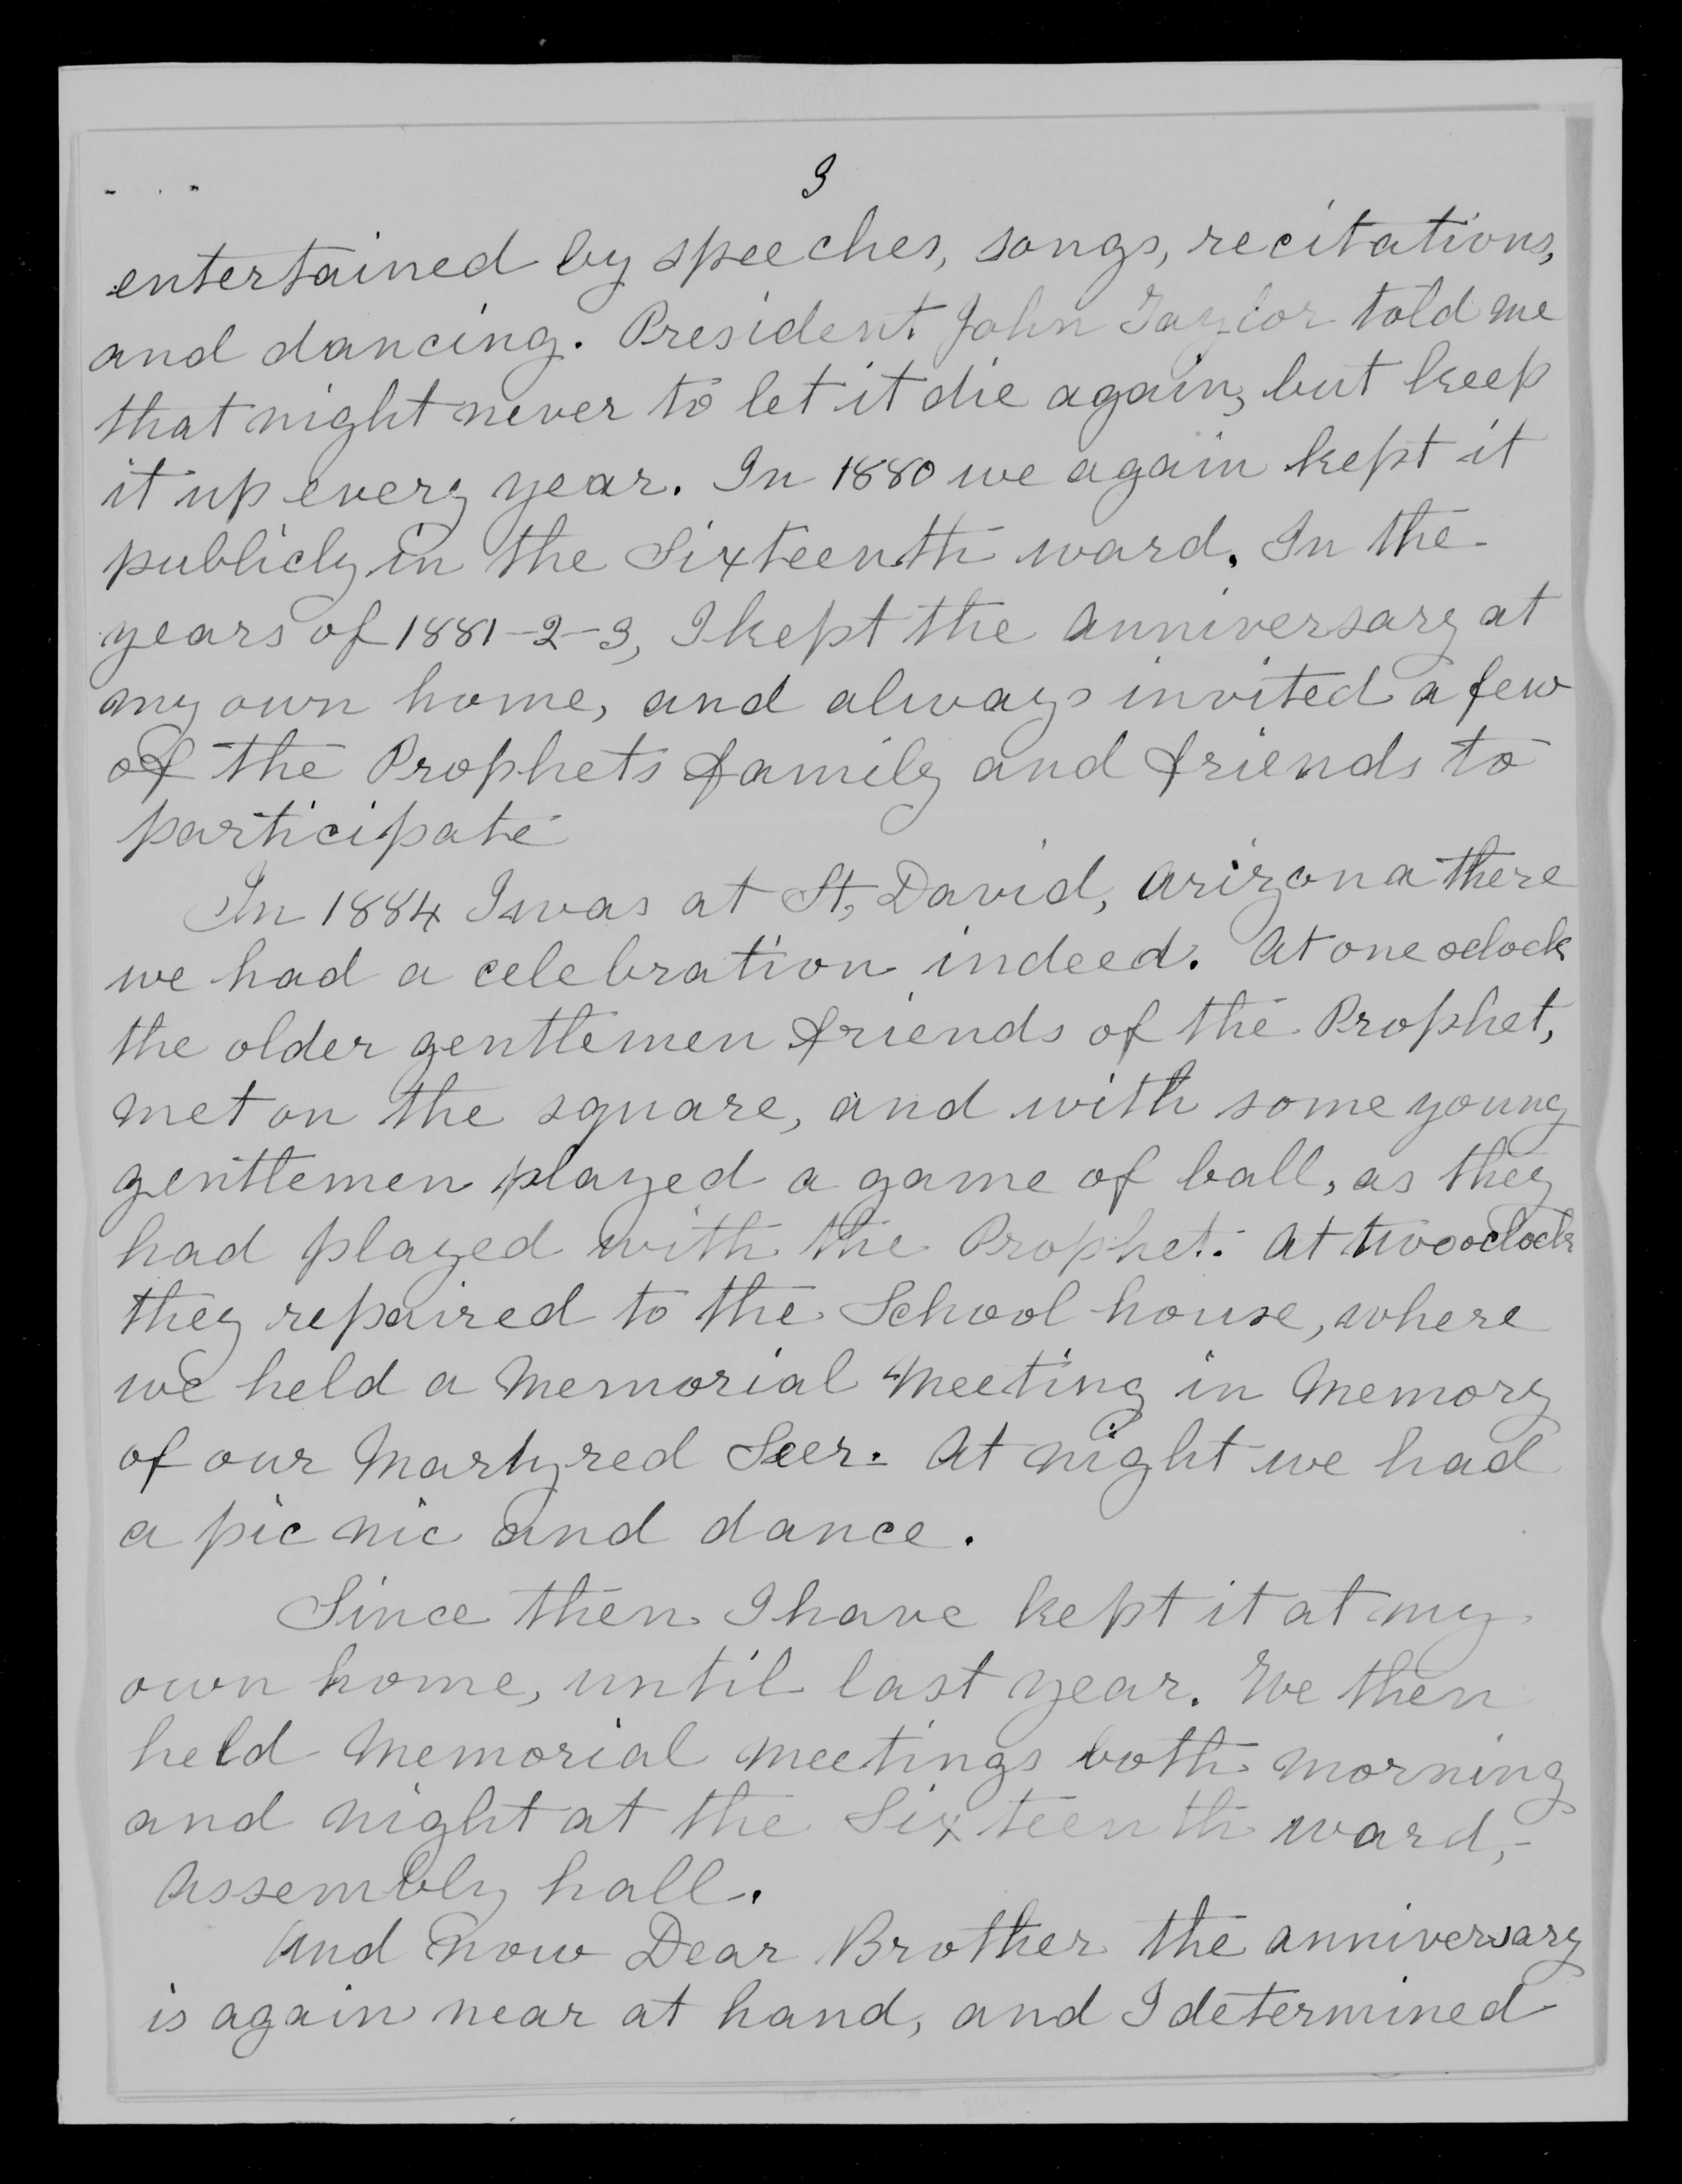 3
entertained by speeches, songs, recitations,
and dancing. President John Taylor told me
that night never to let it die again, but keep
it up every year. In 1880 we again kept it
publicly in the Sixteenth ward. In the
years of 1881-2-3, I kept the Anniversary at
my own home, and always invited a few
of the Prophets family and friends to
participate
In 1884 I was at St, David, Arizona there
we had a celebration indeed. At one oclock
the older gentlemen friends of the Prophet,
met on the square, and with some young
gentlemen played a game of ball, as they
had played with the Prophet. At two oclock
they repaired to the School house, where
we held a Memorial Meeting in Memory
of our Martyred Seer. At night we had
a pic nic and dance.
Since then I have kept it at my
own home, until last year. We then
held Memorial Meetings both morning
and night at the Sixteenth ward,-
Assembly hall.
And now Dear Brother the anniversary
is again near at hand, and I determined